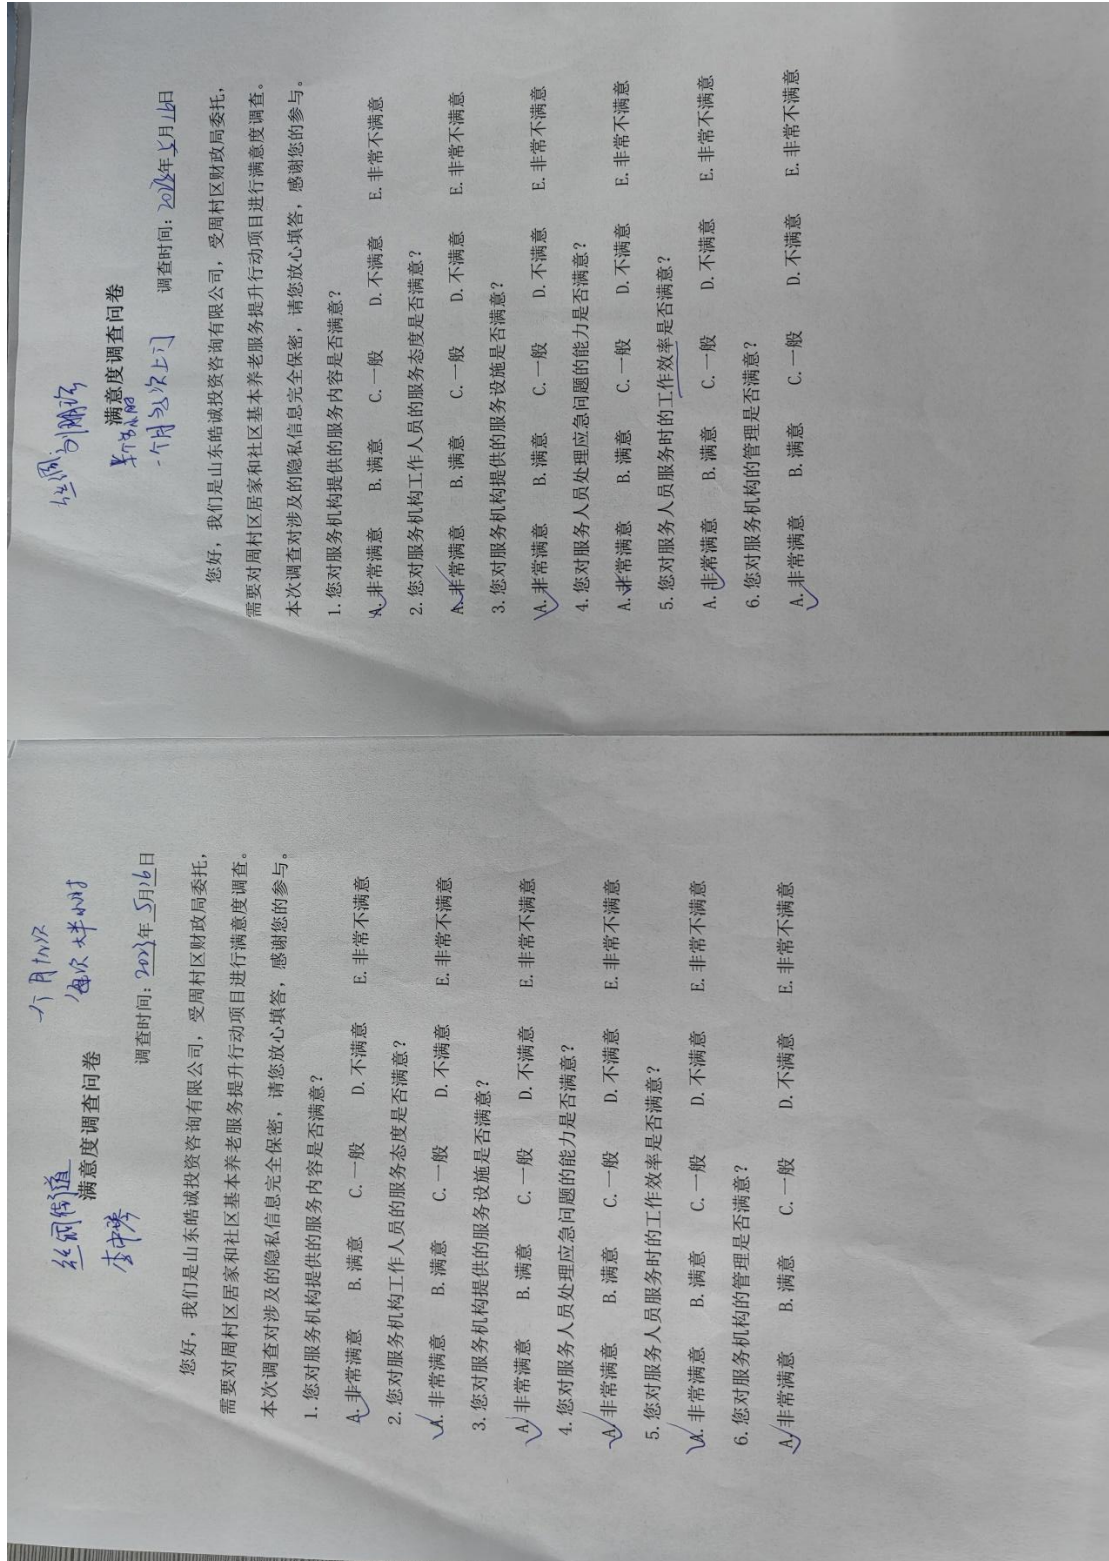 丝绸街道
一个月10次
每次大半小时
满意度调查问卷
调查时间：2023年5月16日
您好，我们是山东皓诚投资咨询有限公司，受周村区财政局委托，
需要对周村区居家和社区基本养老服务提升行动项目进行满意度调查。
本次调查对涉及的隐私信息完全保密，请您放心填答，感谢您的参与。
1. 您对服务机构提供的服务内容是否满意？
A. 非常满意 B. 满意 C. 一般 D. 不满意 E. 非常不满意
2. 您对服务机构工作人员的服务态度是否满意？
A. 非常满意 B. 满意 C. 一般 D. 不满意 E. 非常不满意
3. 您对服务机构提供的服务设施是否满意？
A. 非常满意 B. 满意 C. 一般 D. 不满意 E. 非常不满意
4. 您对服务人员处理应急问题的能力是否满意？
A. 非常满意 B. 满意 C. 一般 D. 不满意 E. 非常不满意
5. 您对服务人员服务时的工作效率是否满意？
A. 非常满意 B. 满意 C. 一般 D. 不满意 E. 非常不满意
6. 您对服务机构的管理是否满意？
A. 非常满意 B. 满意 C. 一般 D. 不满意 E. 非常不满意
丝绸
满意度调查问卷
次上门
调查时间：2023年5月16日
您好，我们是山东皓诚投资咨询有限公司，受周村区财政局委托，
需要对周村区居家和社区基本养老服务提升行动项目进行满意度调查。
本次调查对涉及的隐私信息完全保密，请您放心填答，感谢您的参与。
1. 您对服务机构提供的服务内容是否满意？
A. 非常满意 B. 满意 C. 一般 D. 不满意 E. 非常不满意
2. 您对服务机构工作人员的服务态度是否满意？
A. 非常满意 B. 满意 C. 一般 D. 不满意 E. 非常不满意
3. 您对服务机构提供的服务设施是否满意？
A. 非常满意 B. 满意 C. 一般 D. 不满意 E. 非常不满意
4. 您对服务人员处理应急问题的能力是否满意？
A. 非常满意 B. 满意 C. 一般 D. 不满意 E. 非常不满意
5. 您对服务人员服务时的工作效率是否满意？
A. 非常满意 B. 满意 C. 一般 D. 不满意 E. 非常不满意
6. 您对服务机构的管理是否满意？
A. 非常满意 B. 满意 C. 一般 D. 不满意 E. 非常不满意